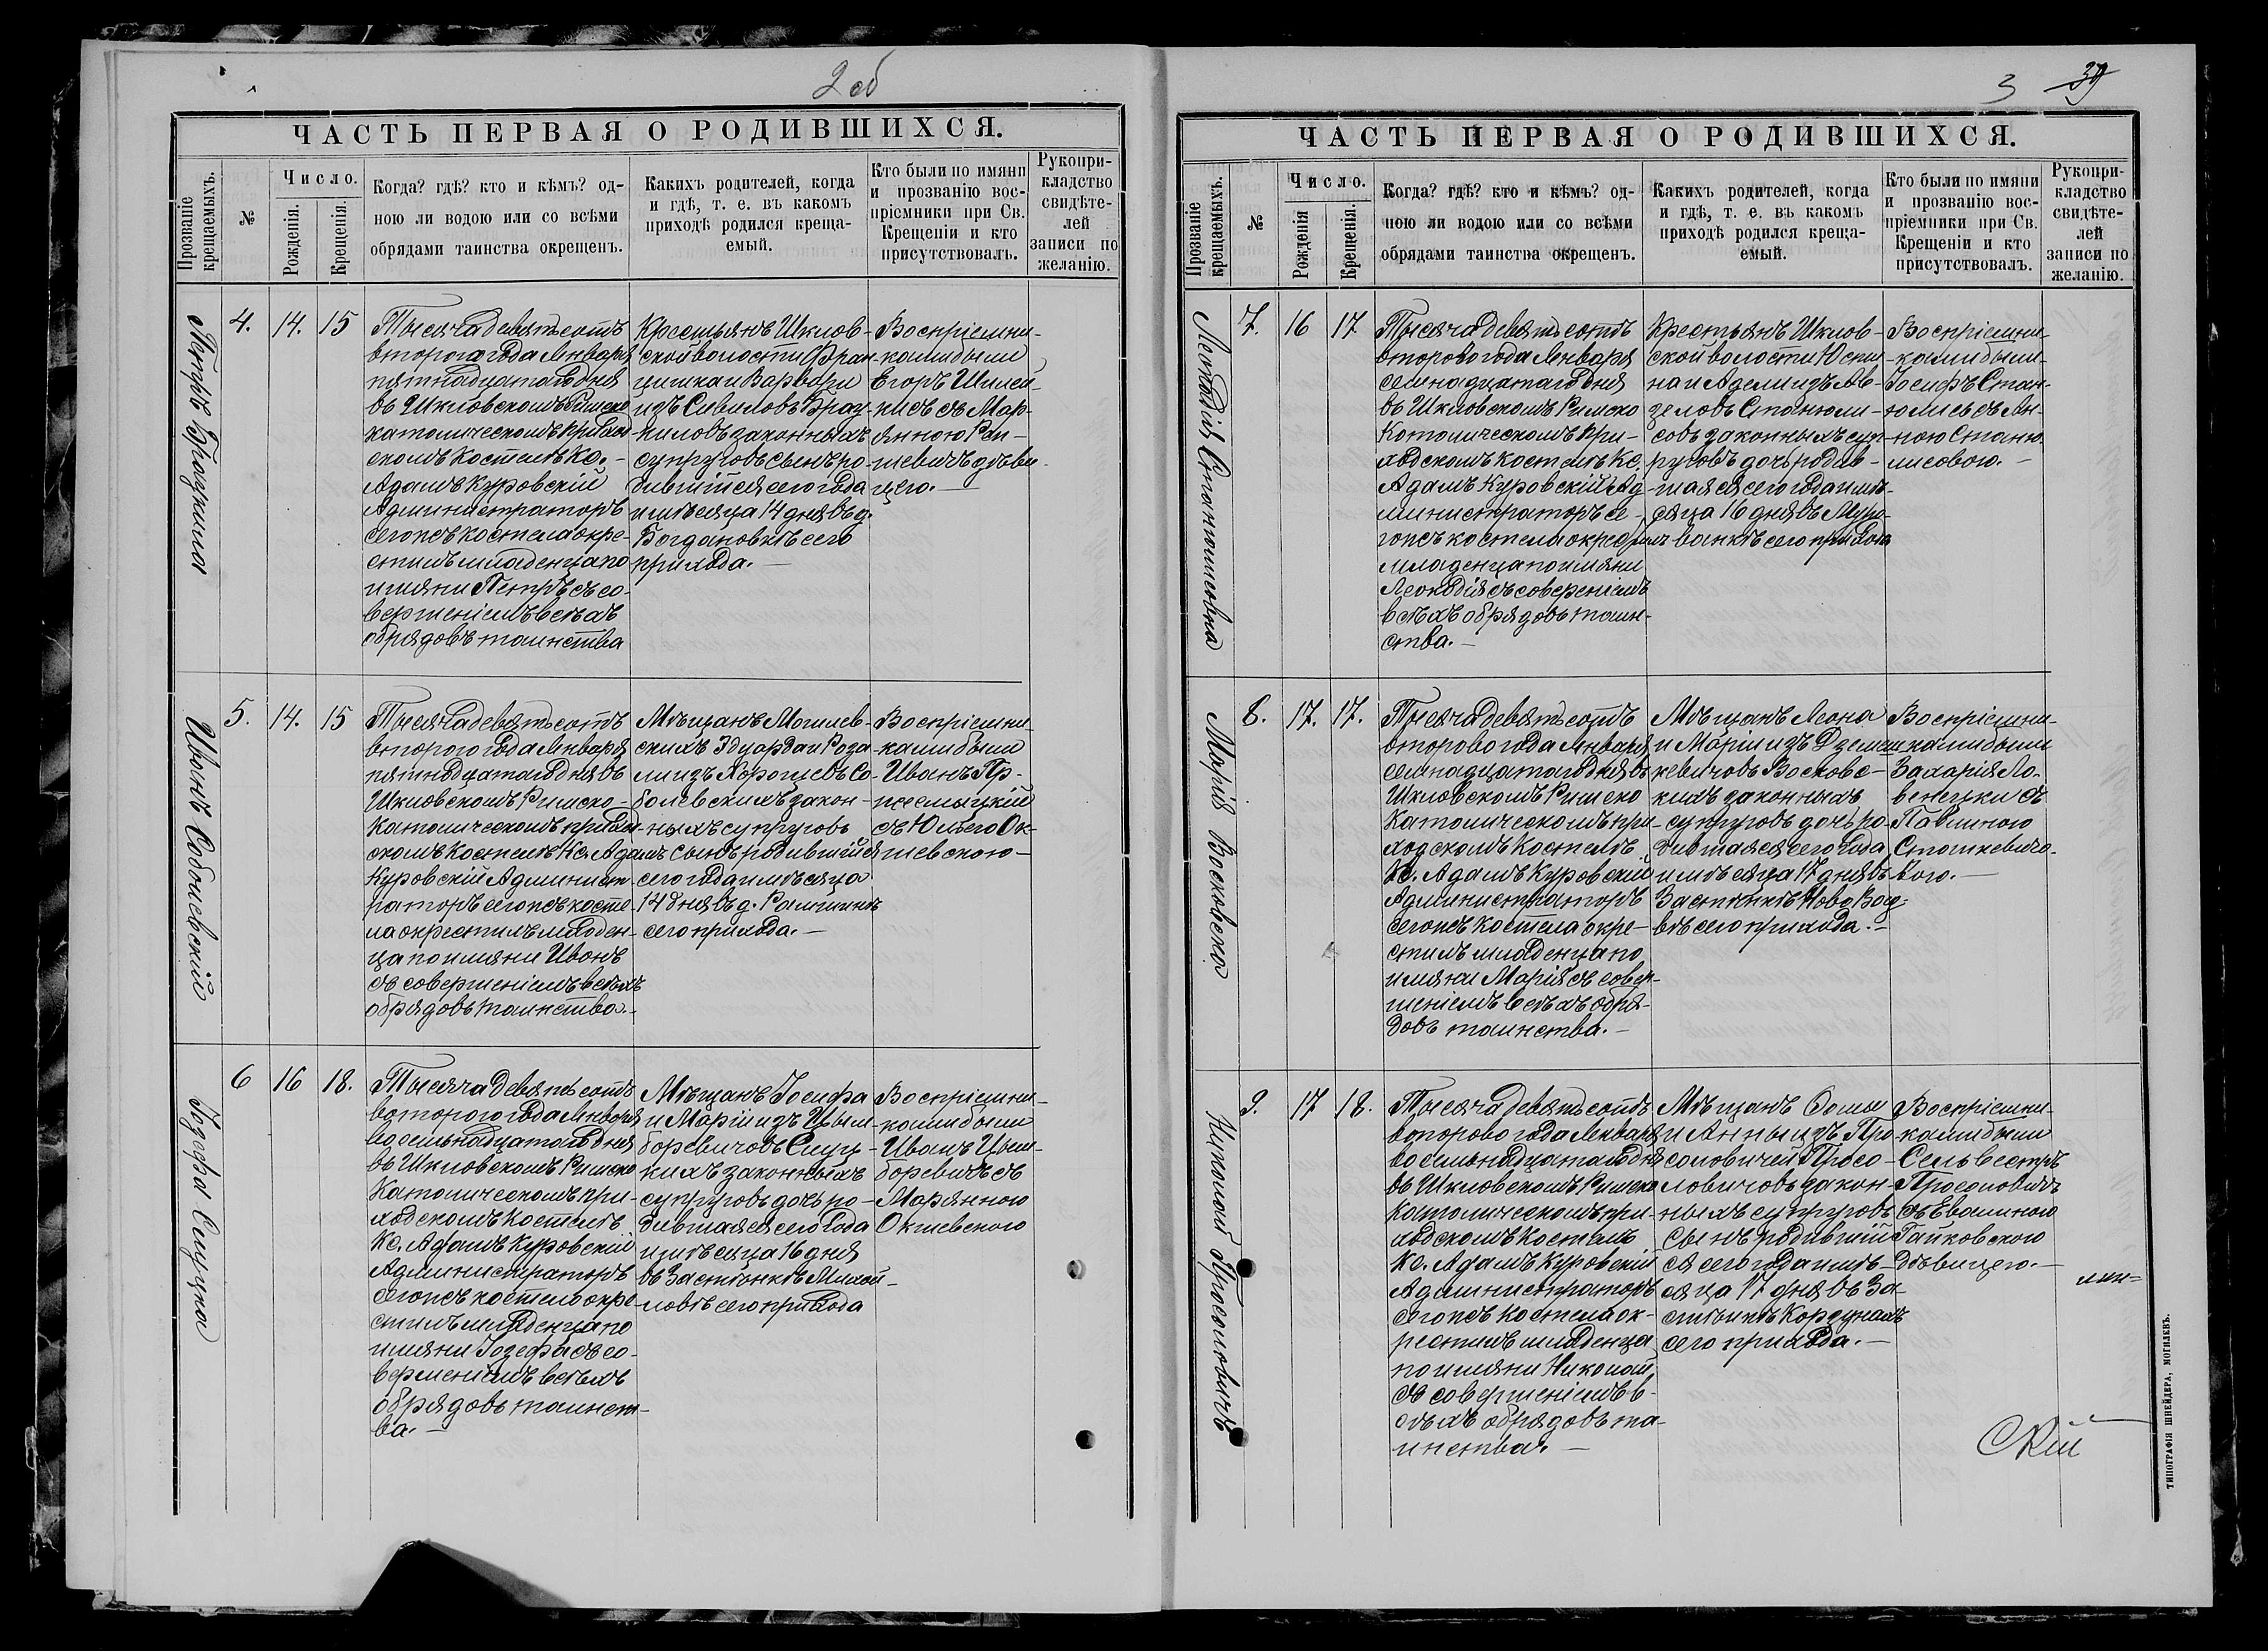 2 об
ЧАСТЬ ПЕРВАЯ О РОДИВШИХСЯ.
Прозваніе крещаемыхъ.
№
Число.
Рожденія.
Крещенія.
Когда? гдѣ? кто и кѣмъ? од-
ною ли водою или со всѣми
обрядами таинства окрещенъ.
Какихъ родителей, когда
и гдѣ, т. е. въ какомъ
приходѣ родился креща-
емый.
Кто были по имяни
и прозванію вос-
пріемники при Св.
Крещеніи и кто
присутствовалъ.
Рукопри-
кладство
свидѣте-
лей
записи по
желанію.
Петръ Брацкила
4.
14.
15
Тысяча девятьсотъ
второго года Января
пятнадцатаго дня
въ Шкловскомъ Римско
католическомъ приход-
скомъ Костелѣ Кс.
Адамъ Куровскій
Администраторъ
сегожъ костела окре-
стилъ младенца по
имяни Петръ съ со-
вершеніемъ всѣхъ
обрядовъ таинства
Крестьянъ Шклов-
ской волости Фран-
цишка и Варвары
изъ
законныхъ
супруговъ сынъ ро-
дившійся сего года
и мѣсяца 14 дня въ д.
Богдановкѣ сего
прихода.
Воспріемни-
ками были
Егоръ
съ Мар-
янною
дѣви-
цею.
Иванъ Соболевскій
5.
14.
15
Тысяча девятьсотъ
второго года Января
пятнадцатаго дня въ
Шкловскомъ Римско-
Католическомъ приход-
скомъ Костелѣ Кс. Адамъ
Куровскій Админист-
раторъ сегожъ косте-
ла окрестилъ младен-
ца по имяни Иванъ
съ совершеніемъ всѣхъ
обрядовъ таинства.
Мѣщанъ Могилев-
скихъ Эдуарда и Роза-
ліи изъ Хорошевъ Со-
болевскихъ закон-
ныхъ супруговъ
сынъ родившійся
сего года и мѣсяца
14 дня въ д.
сего прихода.
Воспріемни-
ками были
Иванъ Пр-
жемыцкій
съ Юліею Ок-
шевскою
Іозефа Слуцка
6
16
18.
Тысяча девятьсотъ
второго года Января
восемьнадцатаго дня
въ Шкловскомъ Римско
Католическомъ при-
ходскомъ Костелѣ
Кс. Адамъ Куровскій
Администраторъ
сегожъ костела окре-
стилъ младенца по
имяни Іозефа съ со-
вершеніемъ всѣхъ
обрядовъ таинст-
ва.
Мѣщанъ Іосифа
и Маріи изъ Цым-
боревичовъ Слуц-
кихъ законныхъ
супруговъ дочь ро-
дившаяся сего года
и мѣсяца 16 дня
въ Застѣнкѣ Михай-
ловѣ сего прихода
Воспріемни-
ками были
Иванъ Цым-
боревичъ съ
Марянною
Окшевского
3
39
ЧАСТЬ ПЕРВАЯ О РОДИВШИХСЯ.
Прозваніе крещаемыхъ.
№
Число.
Рожденія
Крещенія.
Когда? гдѣ? кто и кѣмъ? од-
ною ли водою или со всѣми
обрядами таинства окрещенъ.
Какихъ родителей, когда
и гдѣ, т. е. въ какомъ
приходѣ родился креща-
емый.
Кто были по имяни
и прозванію вос-
пріемники при Св.
Крещеніи и кто
присутствовалъ.
Рукопри-
кладство
свидѣте-
лей
записи по
желанію.
Леокадія Станюлисовна
7.
16
17
Тысяча девятьсотъ
второво года Января
семнадцатаго дня
въ Шкловскомъ Римско
Католическомъ при-
ходскомъ костелѣ Кс.
Адамъ Куровскій Ад-
министраторъ се-
гожъ костела окрестилъ
младенца по имяни
Леокадія съ соверешеніемъ
всѣхъ обрядовъ таин-
ства.
Крестьянъ Шклов-
ской волости
на и Аделіи изъ
Станюли-
совъ законныхъ суп-
руговъ дочь родив-
шаяся сего года и мѣ-
сяца 16 дня въ
сего прихода
Воспріемни-
ками были
Іосифъ Стан-
юлисъ съ Ан-
ною Станю-
лисовою.
Марія Восковска
8.
17.
17.
Тысяча девятьсотъ
второво года Января
семнадцатаго дня въ
Шкловскомъ Римско
Католическомъ при-
ходскомъ Костелѣ
Кс. Адамъ Куровскій
Администраторъ
сегожъ Костела окре-
стилъ младенца по
имяни Марія съ совер-
шеніемъ всѣхъ обря-
довъ таинства.
Мѣщанъ Леона
и Маріи изъ Дземеш-
кевичовъ Восковс-
кихъ законныхъ
супруговъ дочь ро-
дившаяся сего года
и мѣсяца 17 дня въ
Застѣнкѣ
сего прихода.
Воспріемни-
ками были
Захарія Ло-
венецки съ
Павлиною
Сташкевичо-
вою.
Николай Прosоловичъ
9.
17
18.
Тысяча девятьсотъ
второво года Января
восемьнадцатаго дня
въ Шкловскомъ Римско
Католическомъ при-
ходскомъ Костелѣ
Кс. Адамъ Куровскій
Администраторъ
сегожъ Костела ок-
рестилъ младенца
по имяни Николай,
съ совершеніемъ в-
сѣхъ обрядовъ та-
инства.
Мѣщанъ Фомы
и Анны изъ Про-
соловичей Просо-
ловичовъ закон-
ныхъ супруговъ
сынъ родившій-
ся сего года и мѣ-
сяца 17 дня въ За-
стѣнкѣ Кордунахъ
сего прихода.
Воспріемни-
ками были
Сельвестръ
Просоловичъ
съ Евалиною
Гайковского
дѣвицею.
Скій
ТИПОГРАФІЯ ШНЕЙДЕРА, МОГИЛЕВЪ.